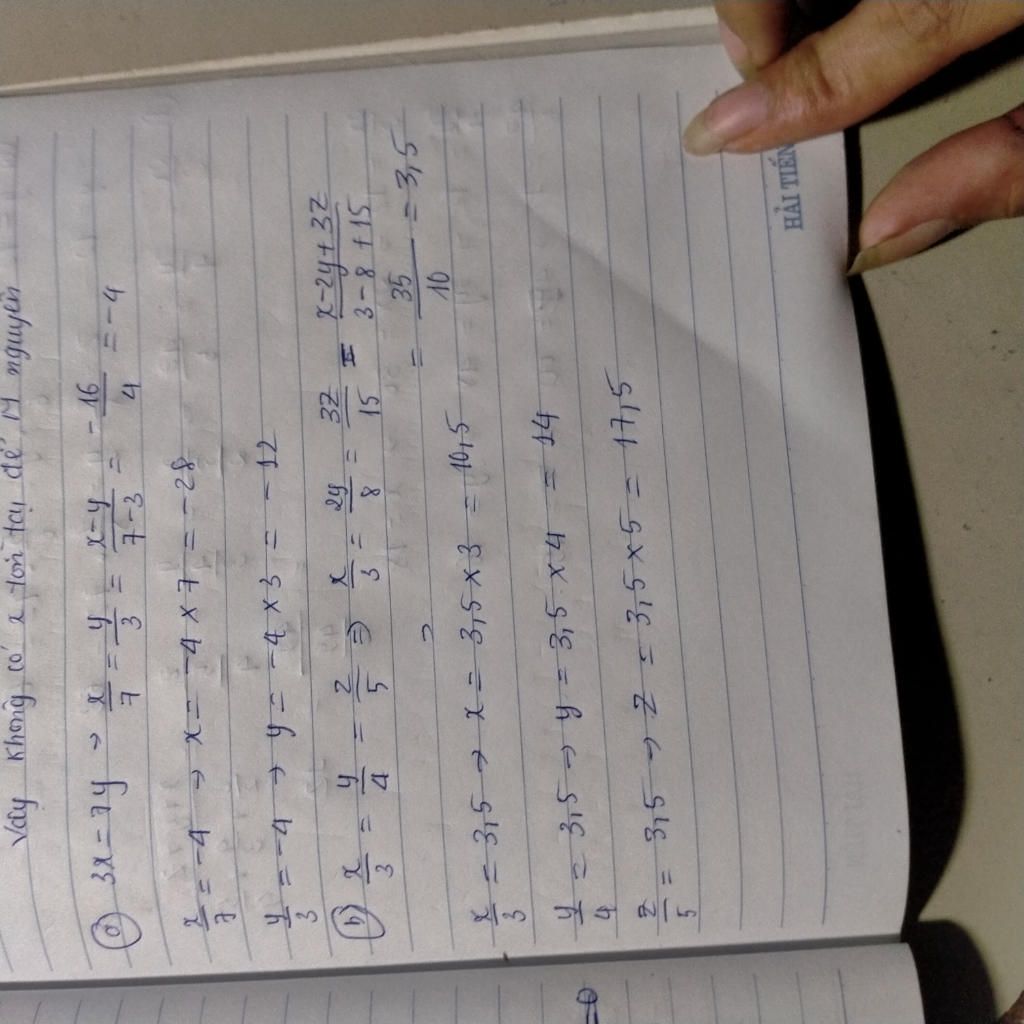 Vậy không có x tồn tại để M nguyên
a) 3x = 7y → x/7 = y/3 = x-y/7-3 = -16/4 = -4
x/7 = -4 → x = -4 x 7 = -28
y/3 = -4 → y = -4 x 3 = -12
b) x/3 = y/4 = z/5 ⇒ x/3 = 2y/8 = 3z/15 = x-2y+3z/3-8+15
= 35/10 = 3,5
⇒
x/3 = 3,5 → x = 3,5 x 3 = 10,5
y/4 = 3,5 → y = 3,5 x 4 = 14
z/5 = 3,5 → z = 3,5 x 5 = 17,5
HẢI TIẾN
=0